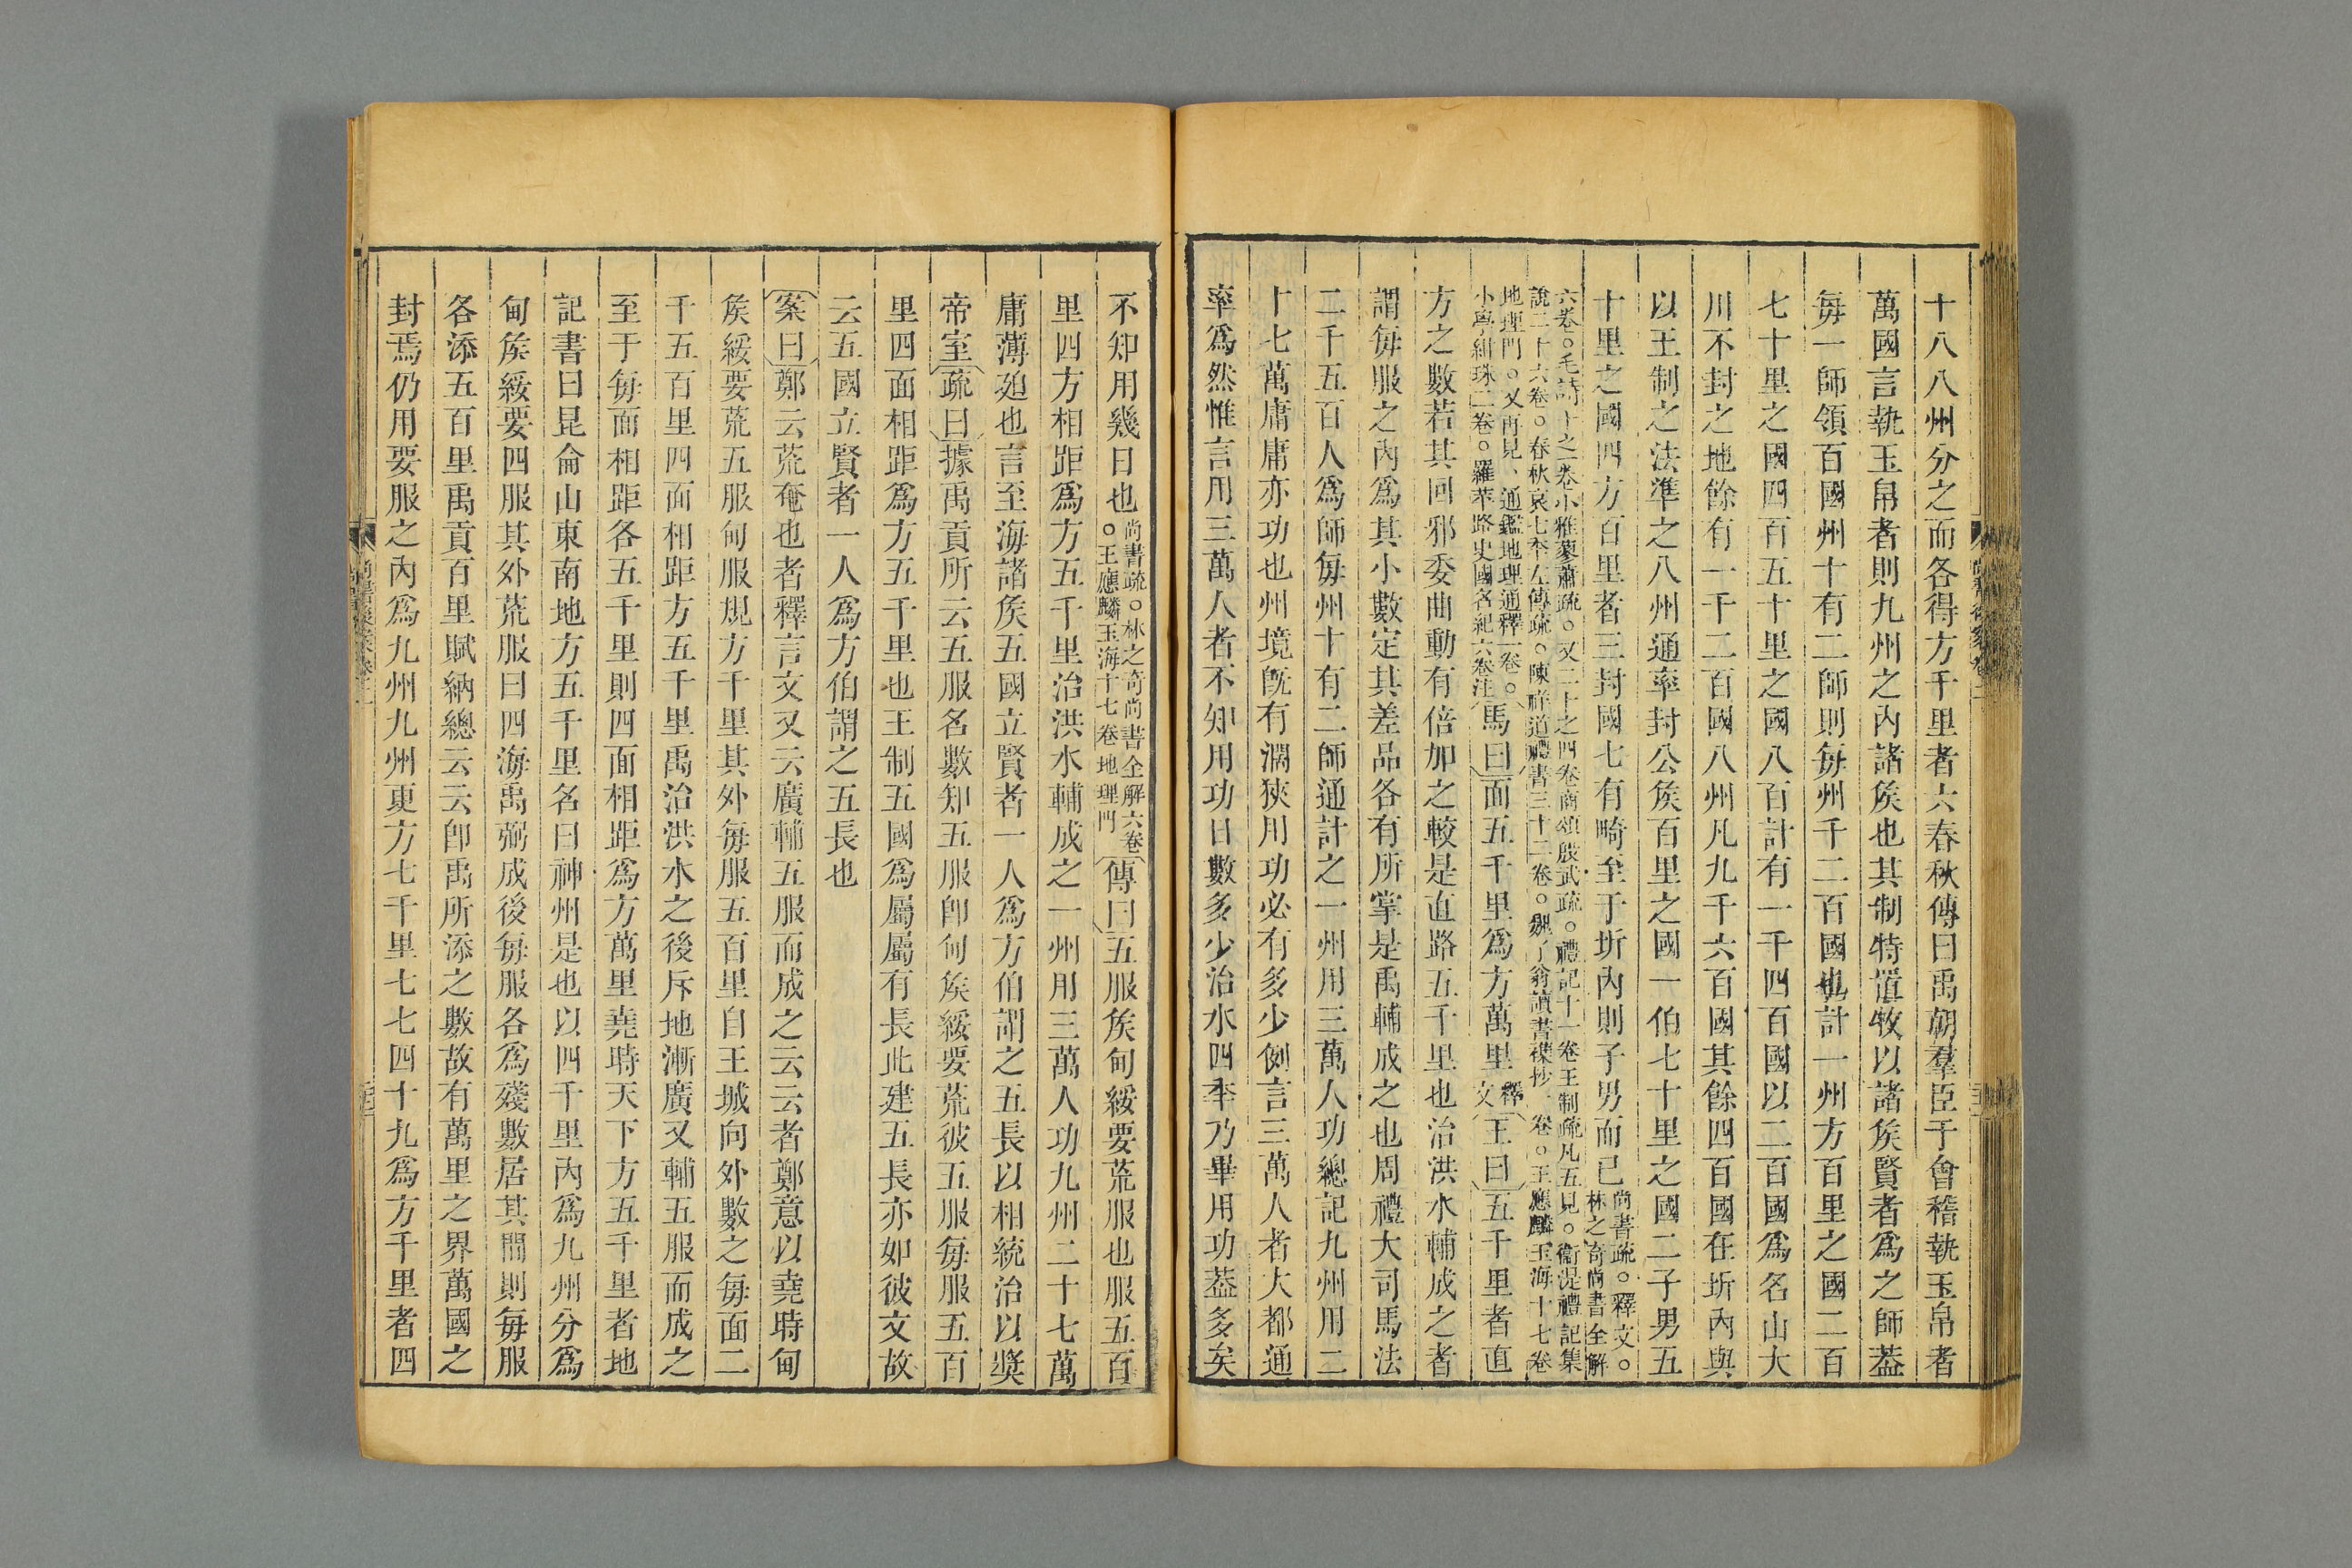 十八八州分之而各得方千里者六春秋傳曰禹朝羣臣于會稽執玉帛者
萬國言執玉帛者則九州之內諸矦也其制特置牧以諸矦賢者爲之師葢
每一師領百國州十有二師則每州千二百國也計一州方百里之國二百
七十里之國四百五十里之國八百計有一千四百國以二百國爲名山大
川不封之地餘有一千二百國八州凡九千六百國其餘四百國在圻內與
以王制之法準之八州通率封公矦百里之國一伯七十里之國二子男五
十里之國四方百里者三封國七有畸至于圻內則子男而已尚書疏。釋文。林之奇尚書全解
六卷。毛詩十之卷小雅蓼蕭疏。又二十之四卷商頌殷武疏。禮記十一卷王制疏凡五見。衞湜禮記集
說二十六卷。春秋哀七年左傳疏。陳祥道禮書三十二卷。魏了翁讀書襍抄一卷。王應麟玉海十七卷
地理門。又再見、通鑑地理通釋一卷。小學紺珠二卷。羅苹路史國名紀六卷注馬曰面五千里爲方萬里釋文王曰五千里者直
方之數若其回邪委曲動有倍加之較是直路五千里也治洪水輔成之者
謂每服之內爲其小數定其差品各有所掌是禹輔成之也周禮大司馬法
二千五百人爲師每州十有二師通計之一州用三萬人功總記九州用二
十七萬庸庸亦功也州境旣有濶狹用功必有多少例言三萬人者大都通
率爲然惟言用三萬人者不知用功日數多少治水四年乃畢用功葢多矣
不知用幾日也尚書疏。林之奇尚書全解六卷。王應麟玉海十七卷地理門傳曰五服矦甸綏要荒服也服五百
里四方相距爲方五千里治洪水輔成之一州用三萬人功九州二十七萬
庸薄廹也言至海諸矦五國立賢者一人爲方伯謂之五長以相統治以奬
帝室疏曰據禹貢所云五服名數知五服卽甸矦綏要荒彼五服每服五百
里四面相距爲方五千里也王制五國爲屬屬有長此建五長亦如彼文故
云五國立賢者一人爲方伯謂之五長也
案曰鄭云荒奄也者釋言文又云廣輔五服而成之云云者鄭意以堯時甸
矦綏要荒五服甸服規方千里其外每服五百里自王城向外數之每面二
千五百里四面相距方五千里禹治洪水之後斥地漸廣又輔五服而成之
至于每面相距各五千里則四面相距爲方萬里堯時天下方五千里者地
記書曰昆侖山東南地方五千里名曰神州是也以四千里內爲九州分爲
甸矦綏要四服其外荒服曰四海禹弼成後每服各爲殘數居其間則每服
各添五百里禹貢百里賦納總云云卽禹所添之數故有萬里之界萬國之
封焉仍用要服之內爲九州九州更方七千里七七四十九爲方千里者四